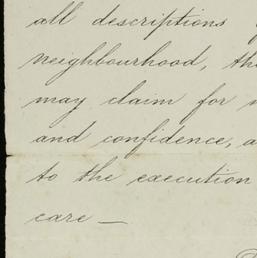 all descriptions
neighbourhood, the
may claim for
and confidence, a
to the execution
care —